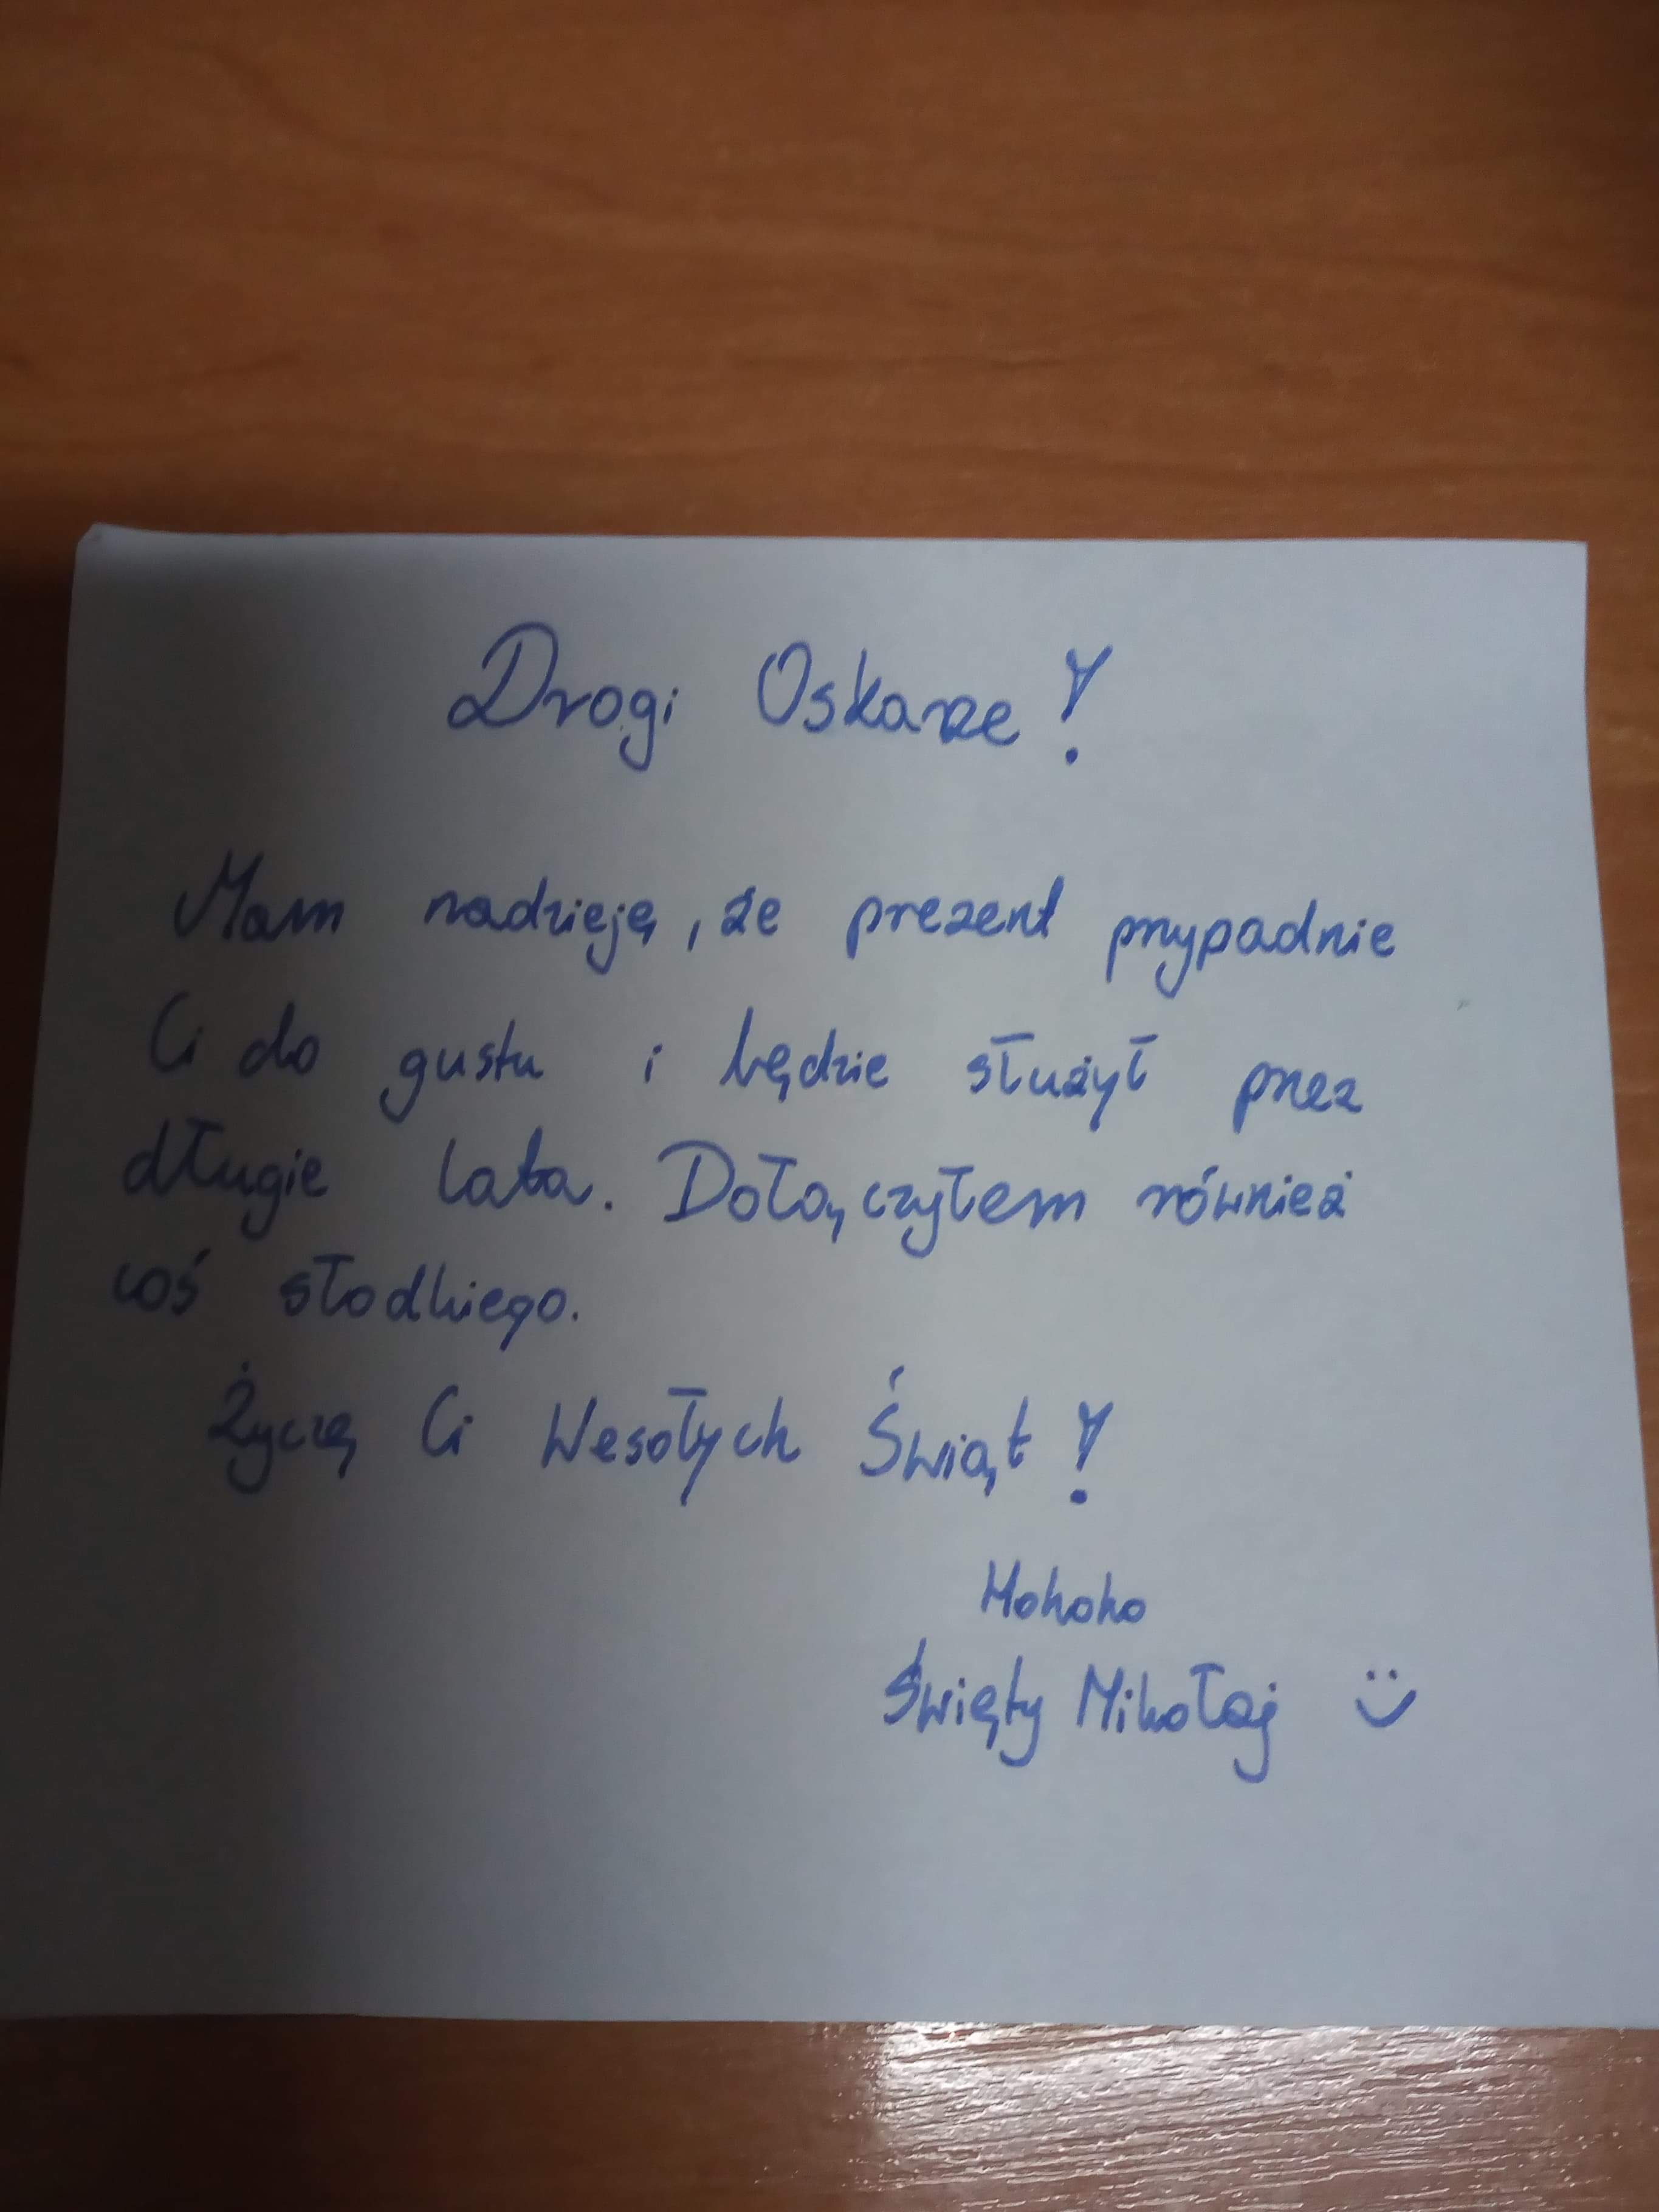 Drogi Oskarze!
Mam nadzieję, że prezent przypadnie
Ci do gustu i będzie służył przez
długie lata. Dołączyłem również
coś słodkiego.
Życzę Ci Wesołych Świąt!
Hohoho
Święty Mikołaj :)